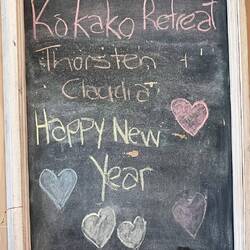 Kokako Retreat
Thorsten +
Claudia
Happy New
Year